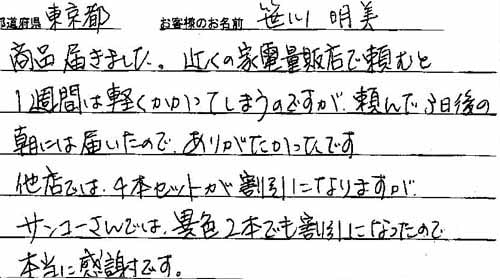 都道府県 東京都 お客様のお名前 笹川 明美
商品届きました。近くの家電量販店で頼むと
1週間は軽くかかってしまうのですが、頼んで3日後の
朝には届いたので、ありがたかったです
他店では、4本セットが割引になりますが、
サンコーさんでは、異色2本でも割引になったので
本当に感謝です。